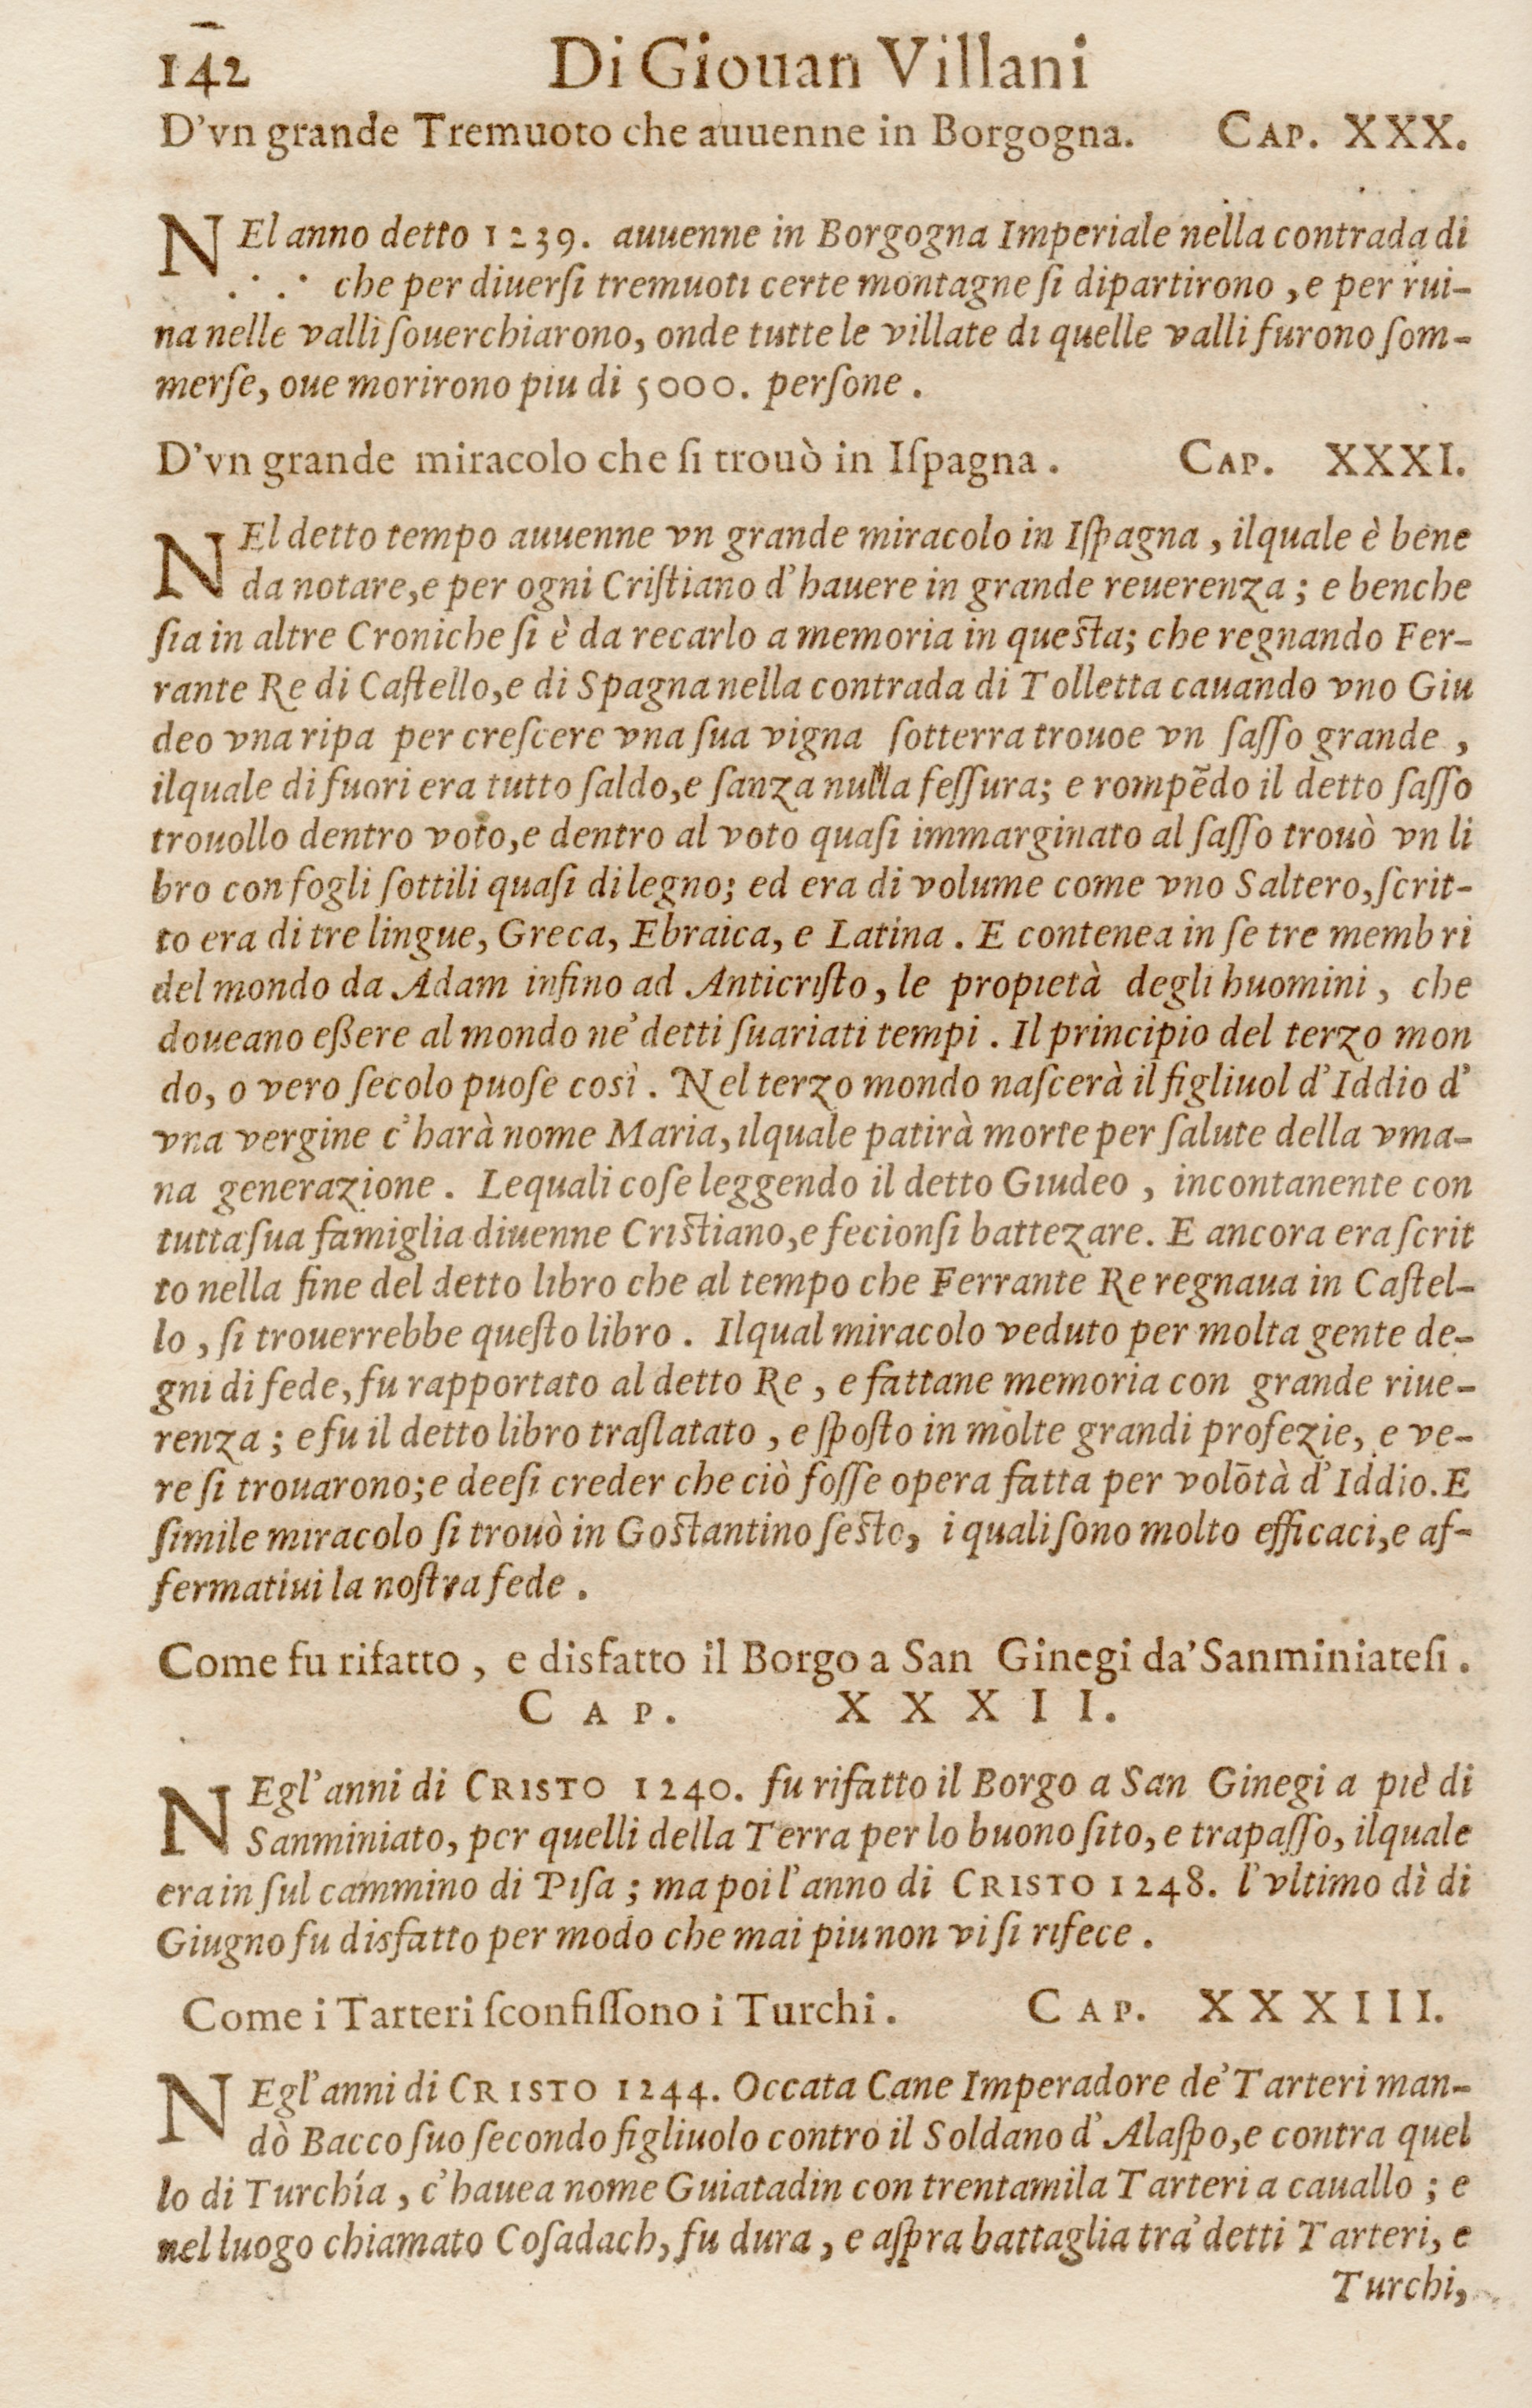 142 Di Giouan Villani
D'vn grande Tremuoto che auuenne in Borgogna. CAP. XXX.
NEl anno detto 1239. auuenne in Borgogna Imperiale nella contrada di
. . . che per diuerſi tremuoti certe montagne ſi dipartirono, e per rui-
na nelle valli ſouerchiarono, onde tutte le villate di quelle valli furono ſom-
merſe, oue morirono piu di 5000. perſone.
D'vn grande miracolo che ſi trouò in Iſpagna. CAP. XXXI.
NEl detto tempo auuenne vn grande miracolo in Iſpagna, ilquale è bene
da notare, e per ogni Criſtiano d'hauere in grande reuerenza; e benche
ſia in altre Croniche ſi è da recarlo a memoria in queſta; che regnando Fer-
rante Re di Caſtello, e di Spagna nella contrada di Tolletta cauando vno Giu
deo vna ripa per creſcere vna ſua vigna ſotterra trouoe vn ſaſſo grande,
ilquale di fuori era tutto ſaldo, e ſanza nulla feſſura; e rompēdo il detto ſaſſo
trouollo dentro voto, e dentro al voto quaſi immarginato al ſaſſo trouò vn li
bro con fogli ſottili quaſi di legno; ed era di volume come vno Saltero, ſcrit-
to era di tre lingue, Greca, Ebraica, e Latina. E contenea in ſe tre membri
del mondo da Adam infino ad Anticriſto, le propietà degli huomini, che
doueano eßere al mondo ne' detti ſuariati tempi. Il principio del terzo mon
do, o vero ſecolo puoſe così. Nel terzo mondo naſcerà il figliuol d'Iddio d'
vna vergine c'harà nome Maria, ilquale patirà morte per ſalute della vma-
na generazione. Lequali coſe leggendo il detto Giudeo, incontanente con
tutta ſua famiglia diuenne Criſtiano, e fecionſi battezare. E ancora era ſcrit
to nella fine del detto libro che al tempo che Ferrante Re regnaua in Caſtel-
lo, ſi trouerrebbe queſto libro. Ilqual miracolo veduto per molta gente de-
gni di fede, fu rapportato al detto Re, e fattane memoria con grande riue-
renza; e fu il detto libro traſlatato, e ſpoſto in molte grandi profezie, e ve-
re ſi trouarono; e deeſi creder che ciò foſſe opera fatta per volōtà d'Iddio. E
ſimile miracolo ſi trouò in Goſtantino ſeſto, i quali ſono molto efficaci, e af-
fermatiui la noſtra fede.
Come fu rifatto, e disfatto il Borgo a San Ginegi da'Sanminiateſi.
CAP. XXXII.
NEgl'anni di CRISTO 1240. fu rifatto il Borgo a San Ginegi a piè di
Sanminiato, per quelli della Terra per lo buono ſito, e trapaſſo, ilquale
era in ſul cammino di Piſa; ma poi l'anno di CRISTO 1248. l'vltimo dì di
Giugno fu disfatto per modo che mai piu non vi ſi rifece.
Come i Tarteri ſconfiſſono i Turchi. CAP. XXXIII.
NEgl'anni di CRISTO 1244. Occata Cane Imperadore de'Tarteri man-
dò Bacco ſuo ſecondo figliuolo contro il Soldano d'Alaſpo, e contra quel
lo di Turchía, c'hauea nome Guiatadin con trentamila Tarteri a cauallo; e
nel luogo chiamato Coſadach, fu dura, e aſpra battaglia tra'detti Tarteri, e
Turchi,